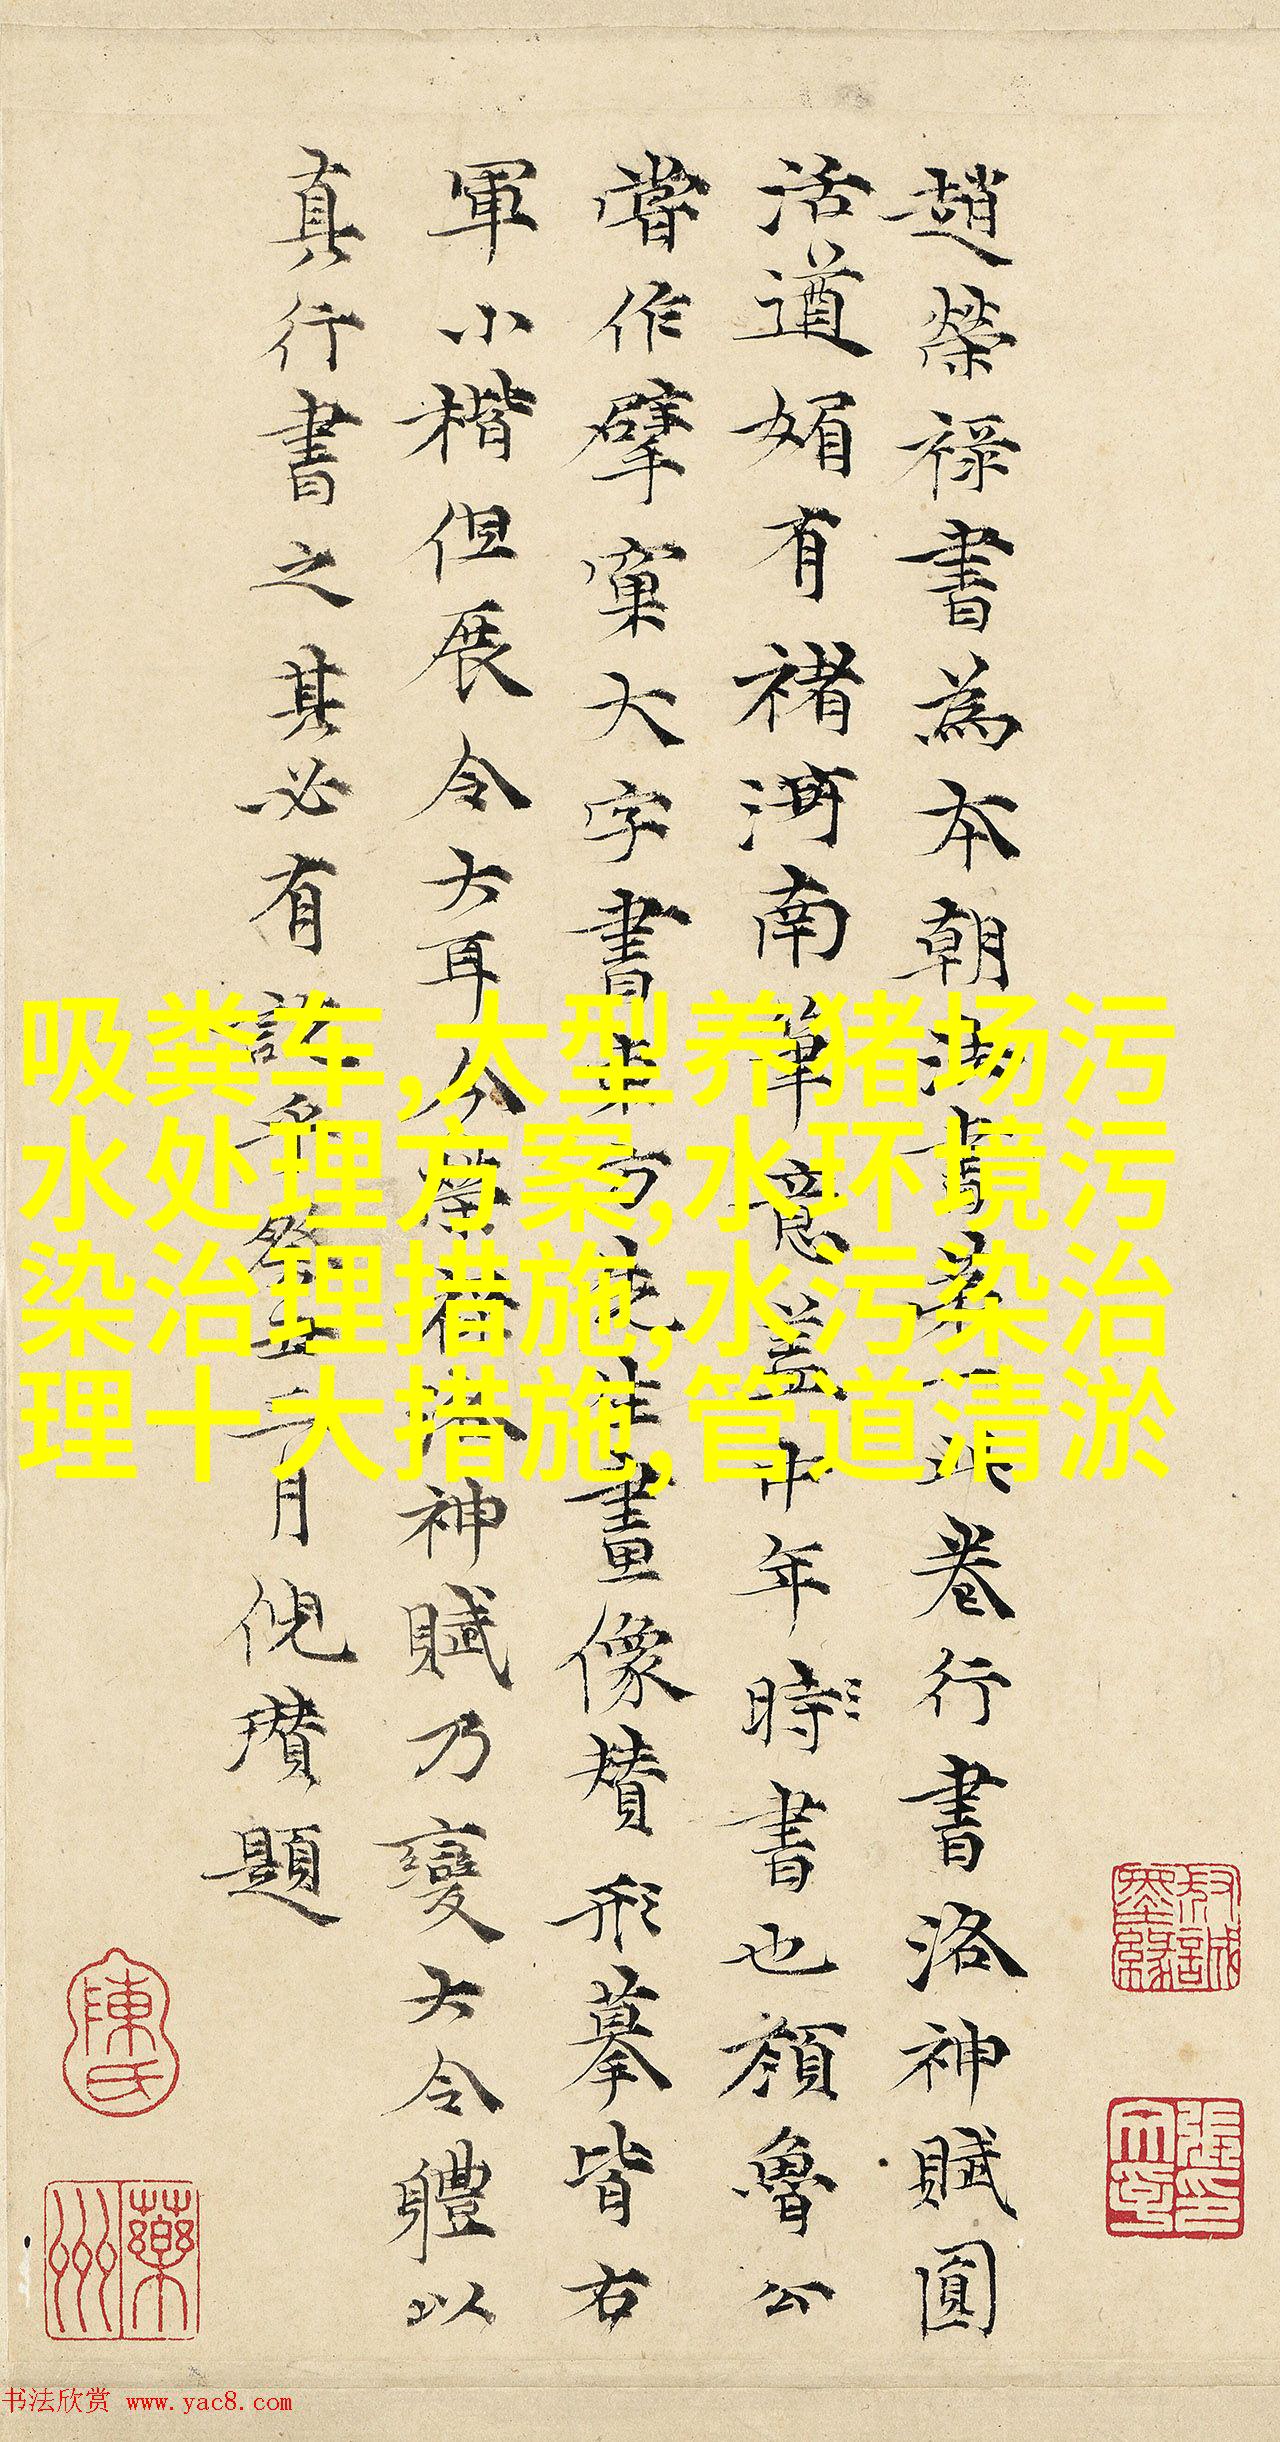 趙榮禄書為本朝法書第一此卷行書洛神賦圓
活遒媚有褚河南筆意蓋中年時書也顏魯公
嘗作擘窠大字書東方先生畫像賛形摹皆右
軍小楷但展令大耳今榮禄洛神賦乃變大令體以
真行書之其必有訣乎癸丑三月倪瓚題
吸粪车,大型养猪场污
水处理方案,水环境污
染治理措施,水污染治
理十大措施,管道清淤
陳氏
书法欣赏 www.yac8.com